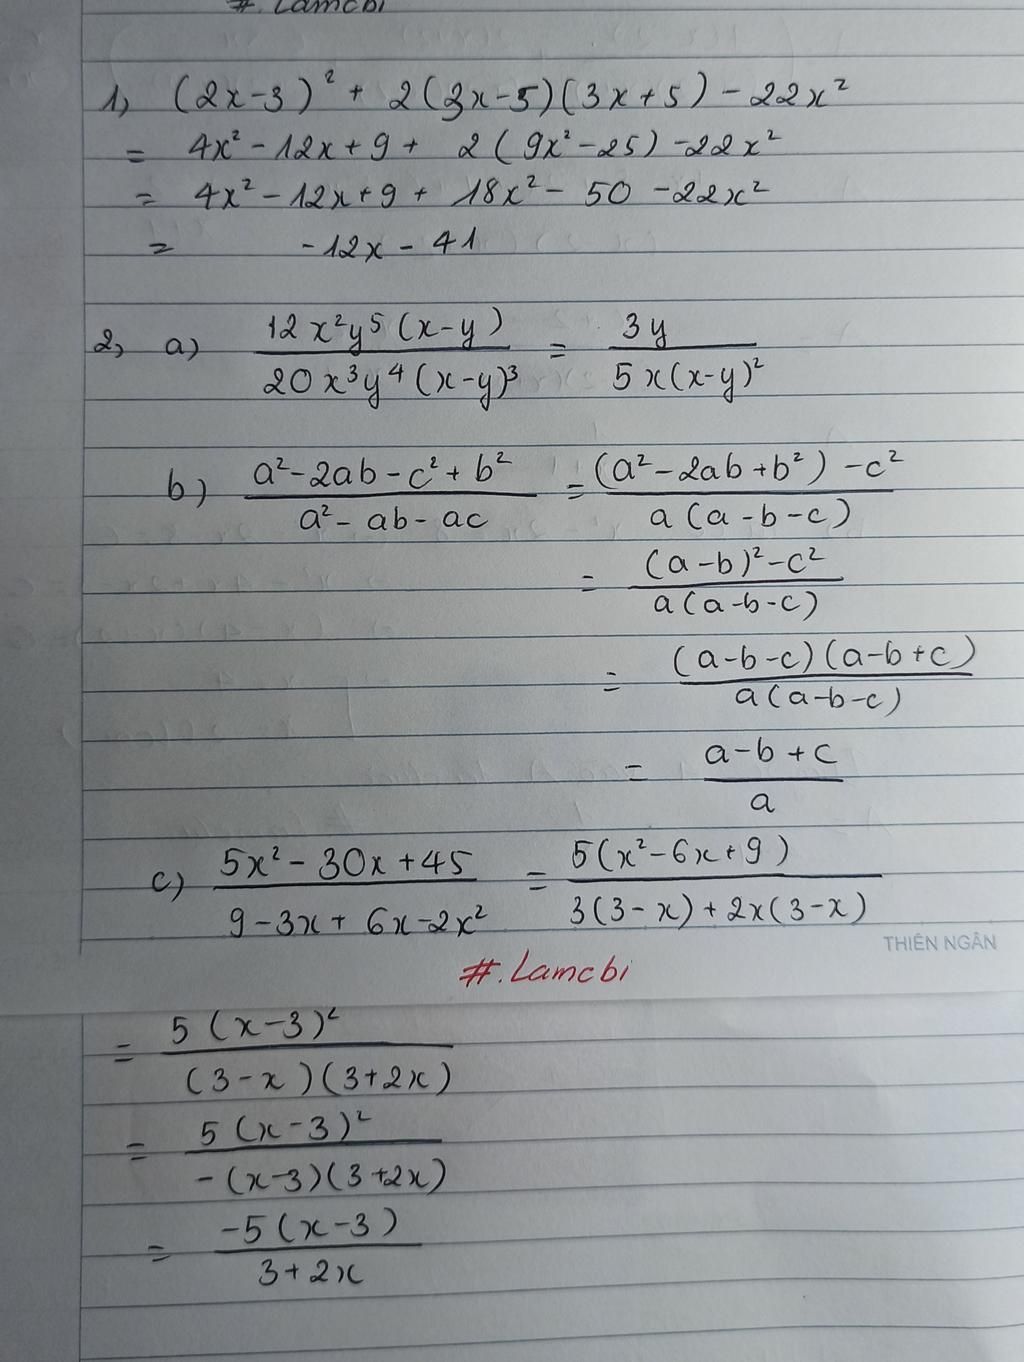 #. Lamcbi
1, (2x-3)² + 2(3x-5)(3x+5) - 22x²
= 4x² - 12x + 9 + 2(9x² - 25) - 22x²
= 4x² - 12x + 9 + 18x² - 50 - 22x²
= -12x - 41
2, a) 12x²y⁵(x-y) / 20x³y⁴(x-y)³ = 3y / 5x(x-y)²
b) a² - 2ab - c² + b² / a² - ab - ac = (a² - 2ab + b²) - c² / a(a-b-c)
= (a-b)² - c² / a(a-b-c)
= (a-b-c)(a-b+c) / a(a-b-c)
= a-b+c / a
c) 5x² - 30x + 45 / 9 - 3x + 6x - 2x² = 5(x² - 6x + 9) / 3(3-x) + 2x(3-x)
THIÊN NGÂN
#. Lamcbi
= 5(x-3)² / (3-x)(3+2x)
= 5(x-3)² / -(x-3)(3+2x)
= -5(x-3) / 3+2x